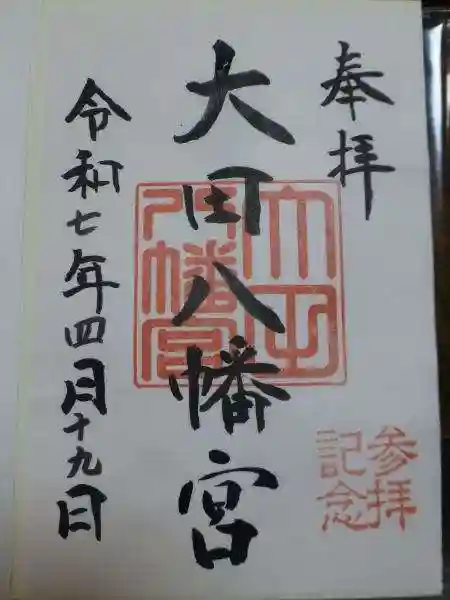 奉拝
大田八幡宮
大田八幡宮
令和七年四月十九日
参拝
記念